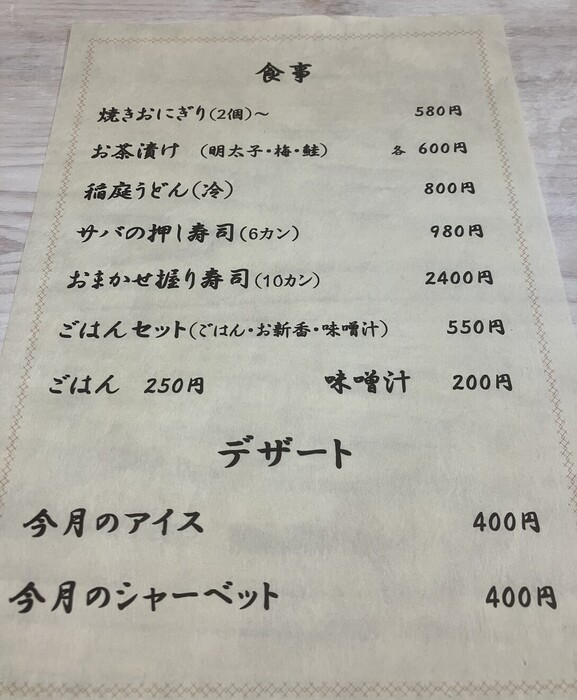 食事
焼きおにぎり(2個)～ 580円
お茶漬け (明太子・梅・鮭) 各 600円
稲庭うどん(冷) 800円
サバの押し寿司(6カン) 980円
おまかせ握り寿司(10カン) 2400円
ごはんセット(ごはん・お新香・味噌汁) 550円
ごはん 250円 味噌汁 200円
デザート
今月のアイス 400円
今月のシャーベット 400円